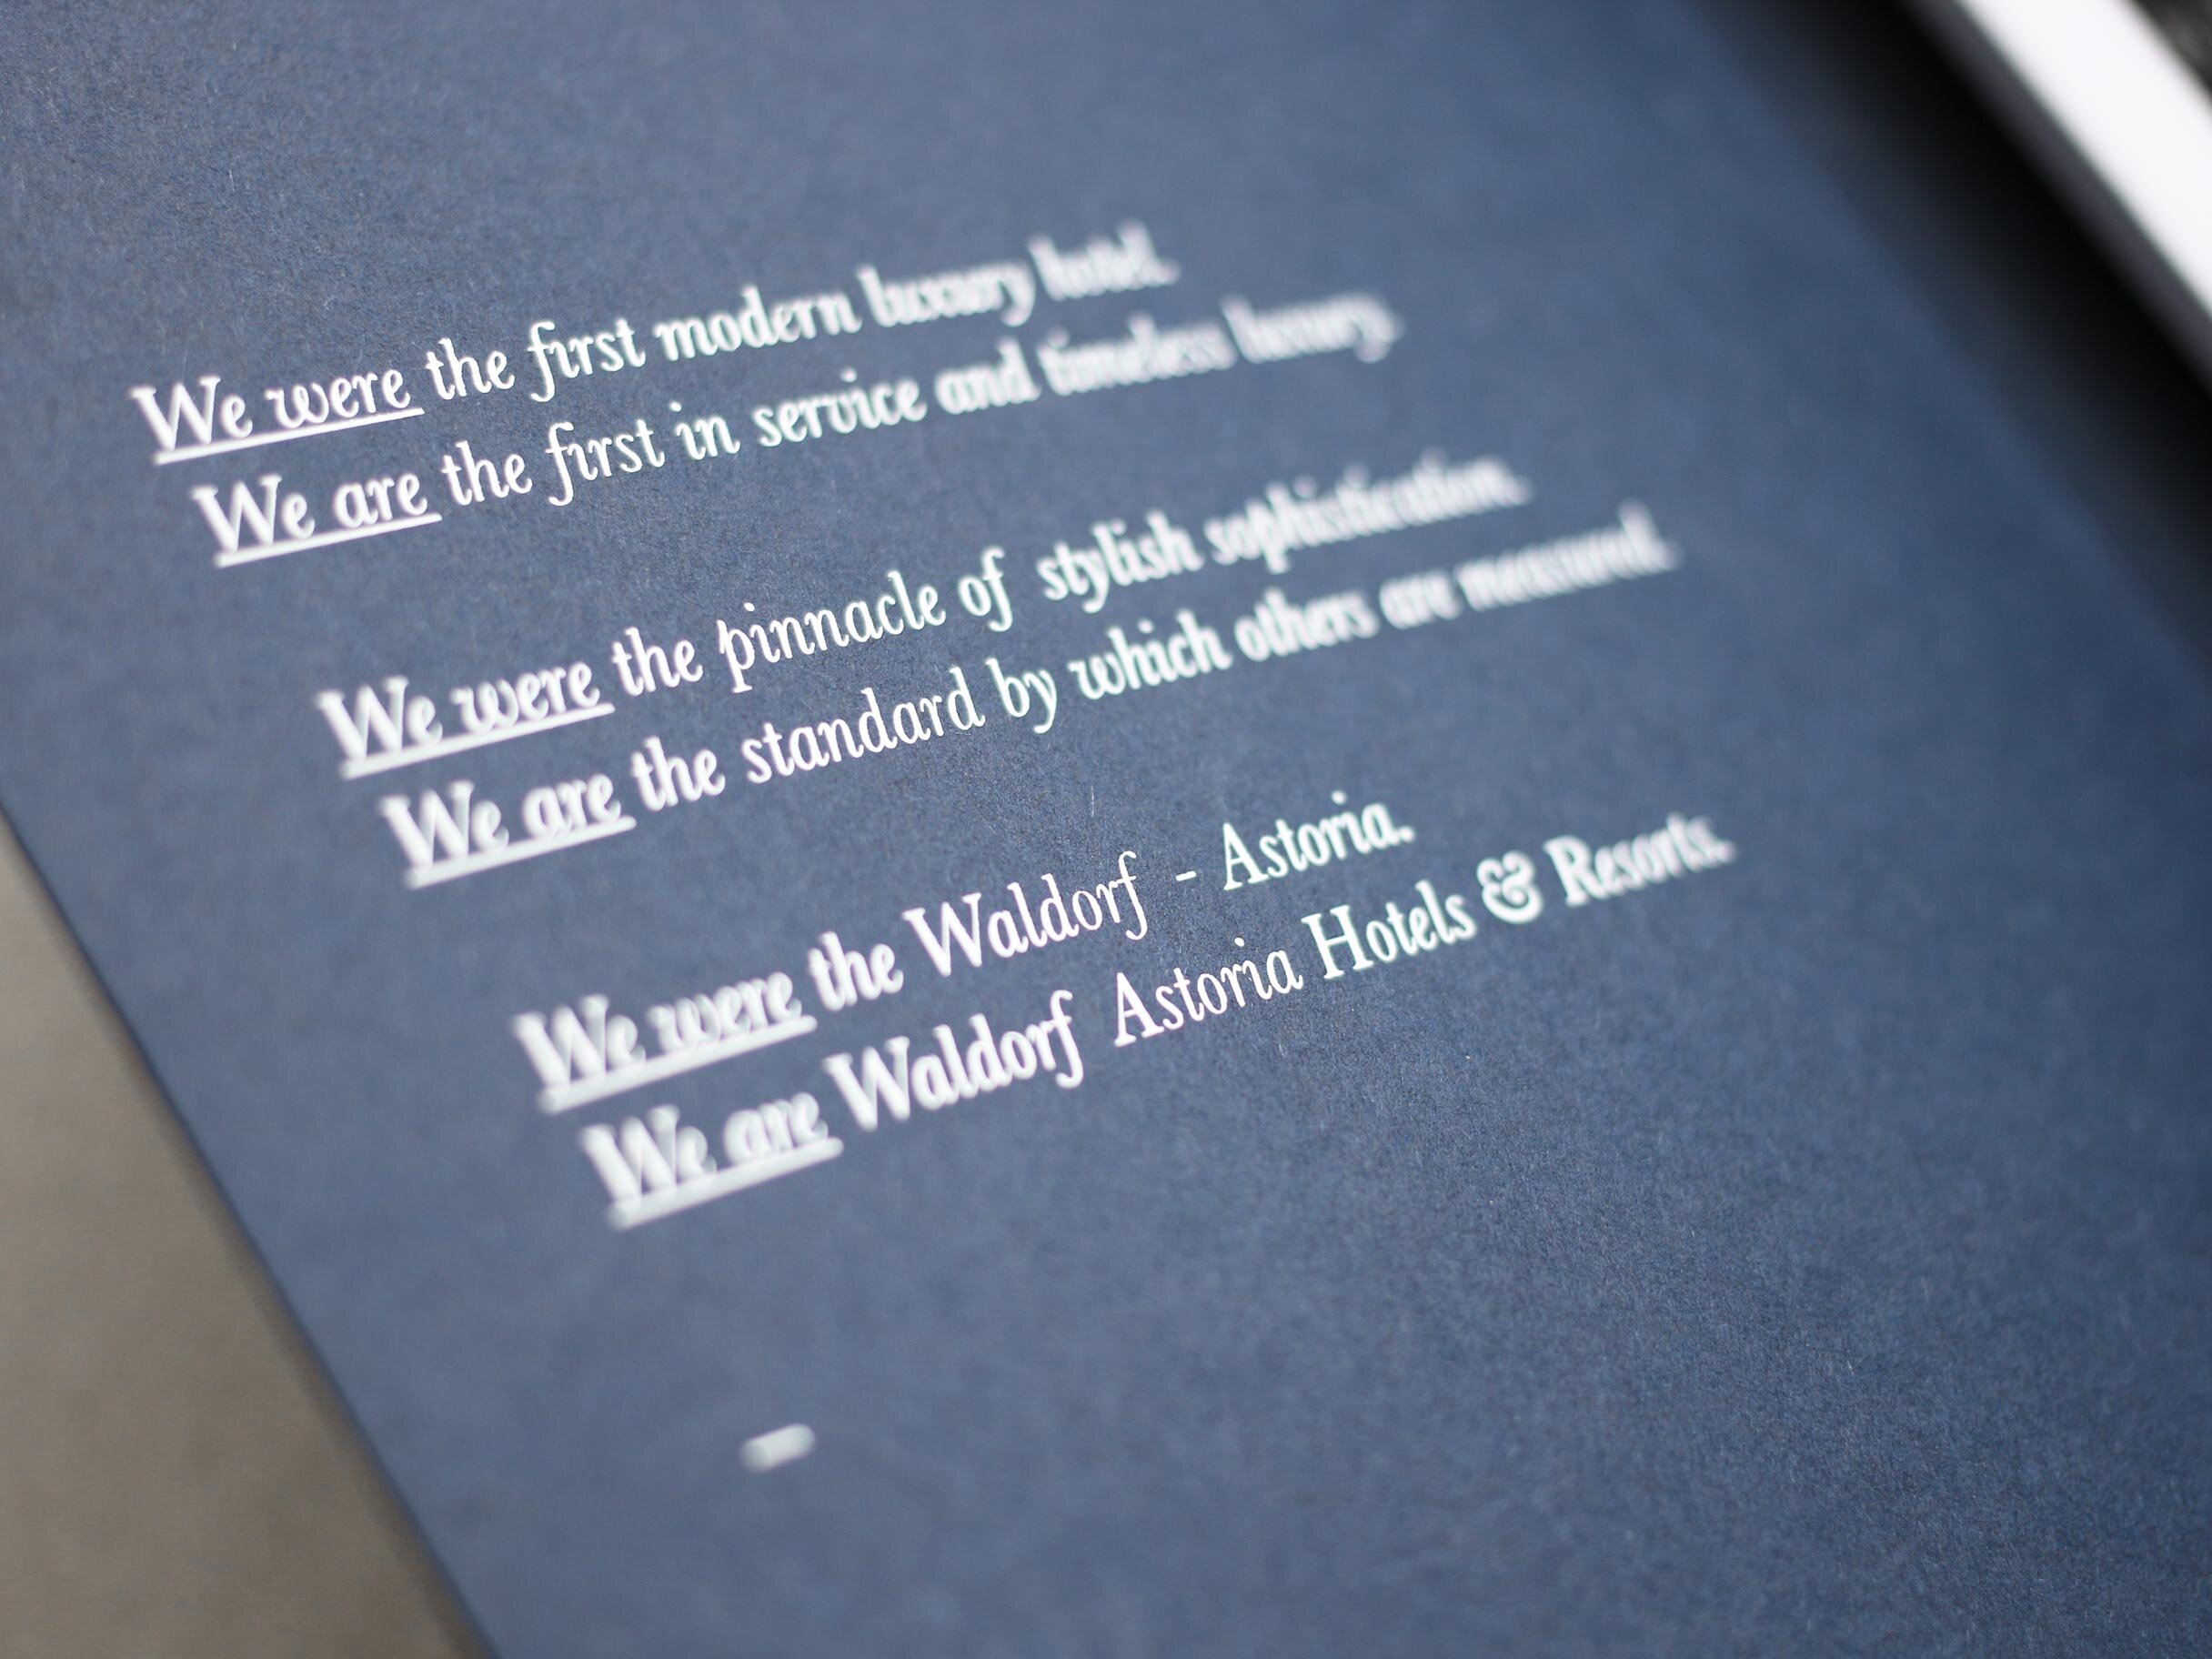 We were the first modern luxury hotel.
We are the first in service and timeless luxury.
We were the pinnacle of stylish sophistication.
We are the standard by which others are measured.
We were the Waldorf - Astoria.
We are Waldorf Astoria Hotels & Resorts.